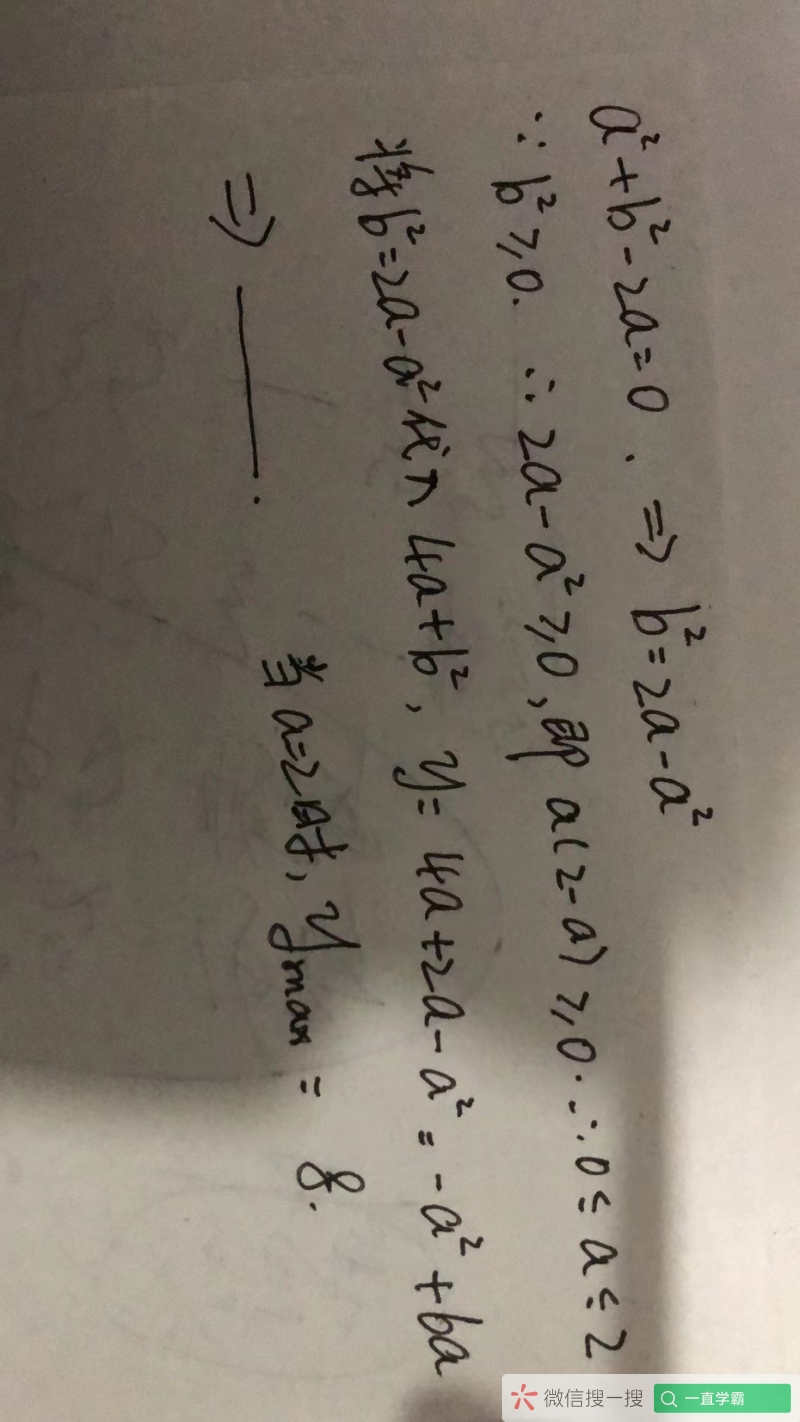 a²+b²-2a=0. ⇒ b²=2a-a²
∵ b²≥0. ∴ 2a-a²≥0,即 a(2-a)≥0. ∴ 0≤a≤2
将b²=2a-a²代入 4a+b², y=4a+2a-a²=-a²+6a
⇒ ———. 当a=2时, ymax= 8.
微信搜一搜 一直学霸